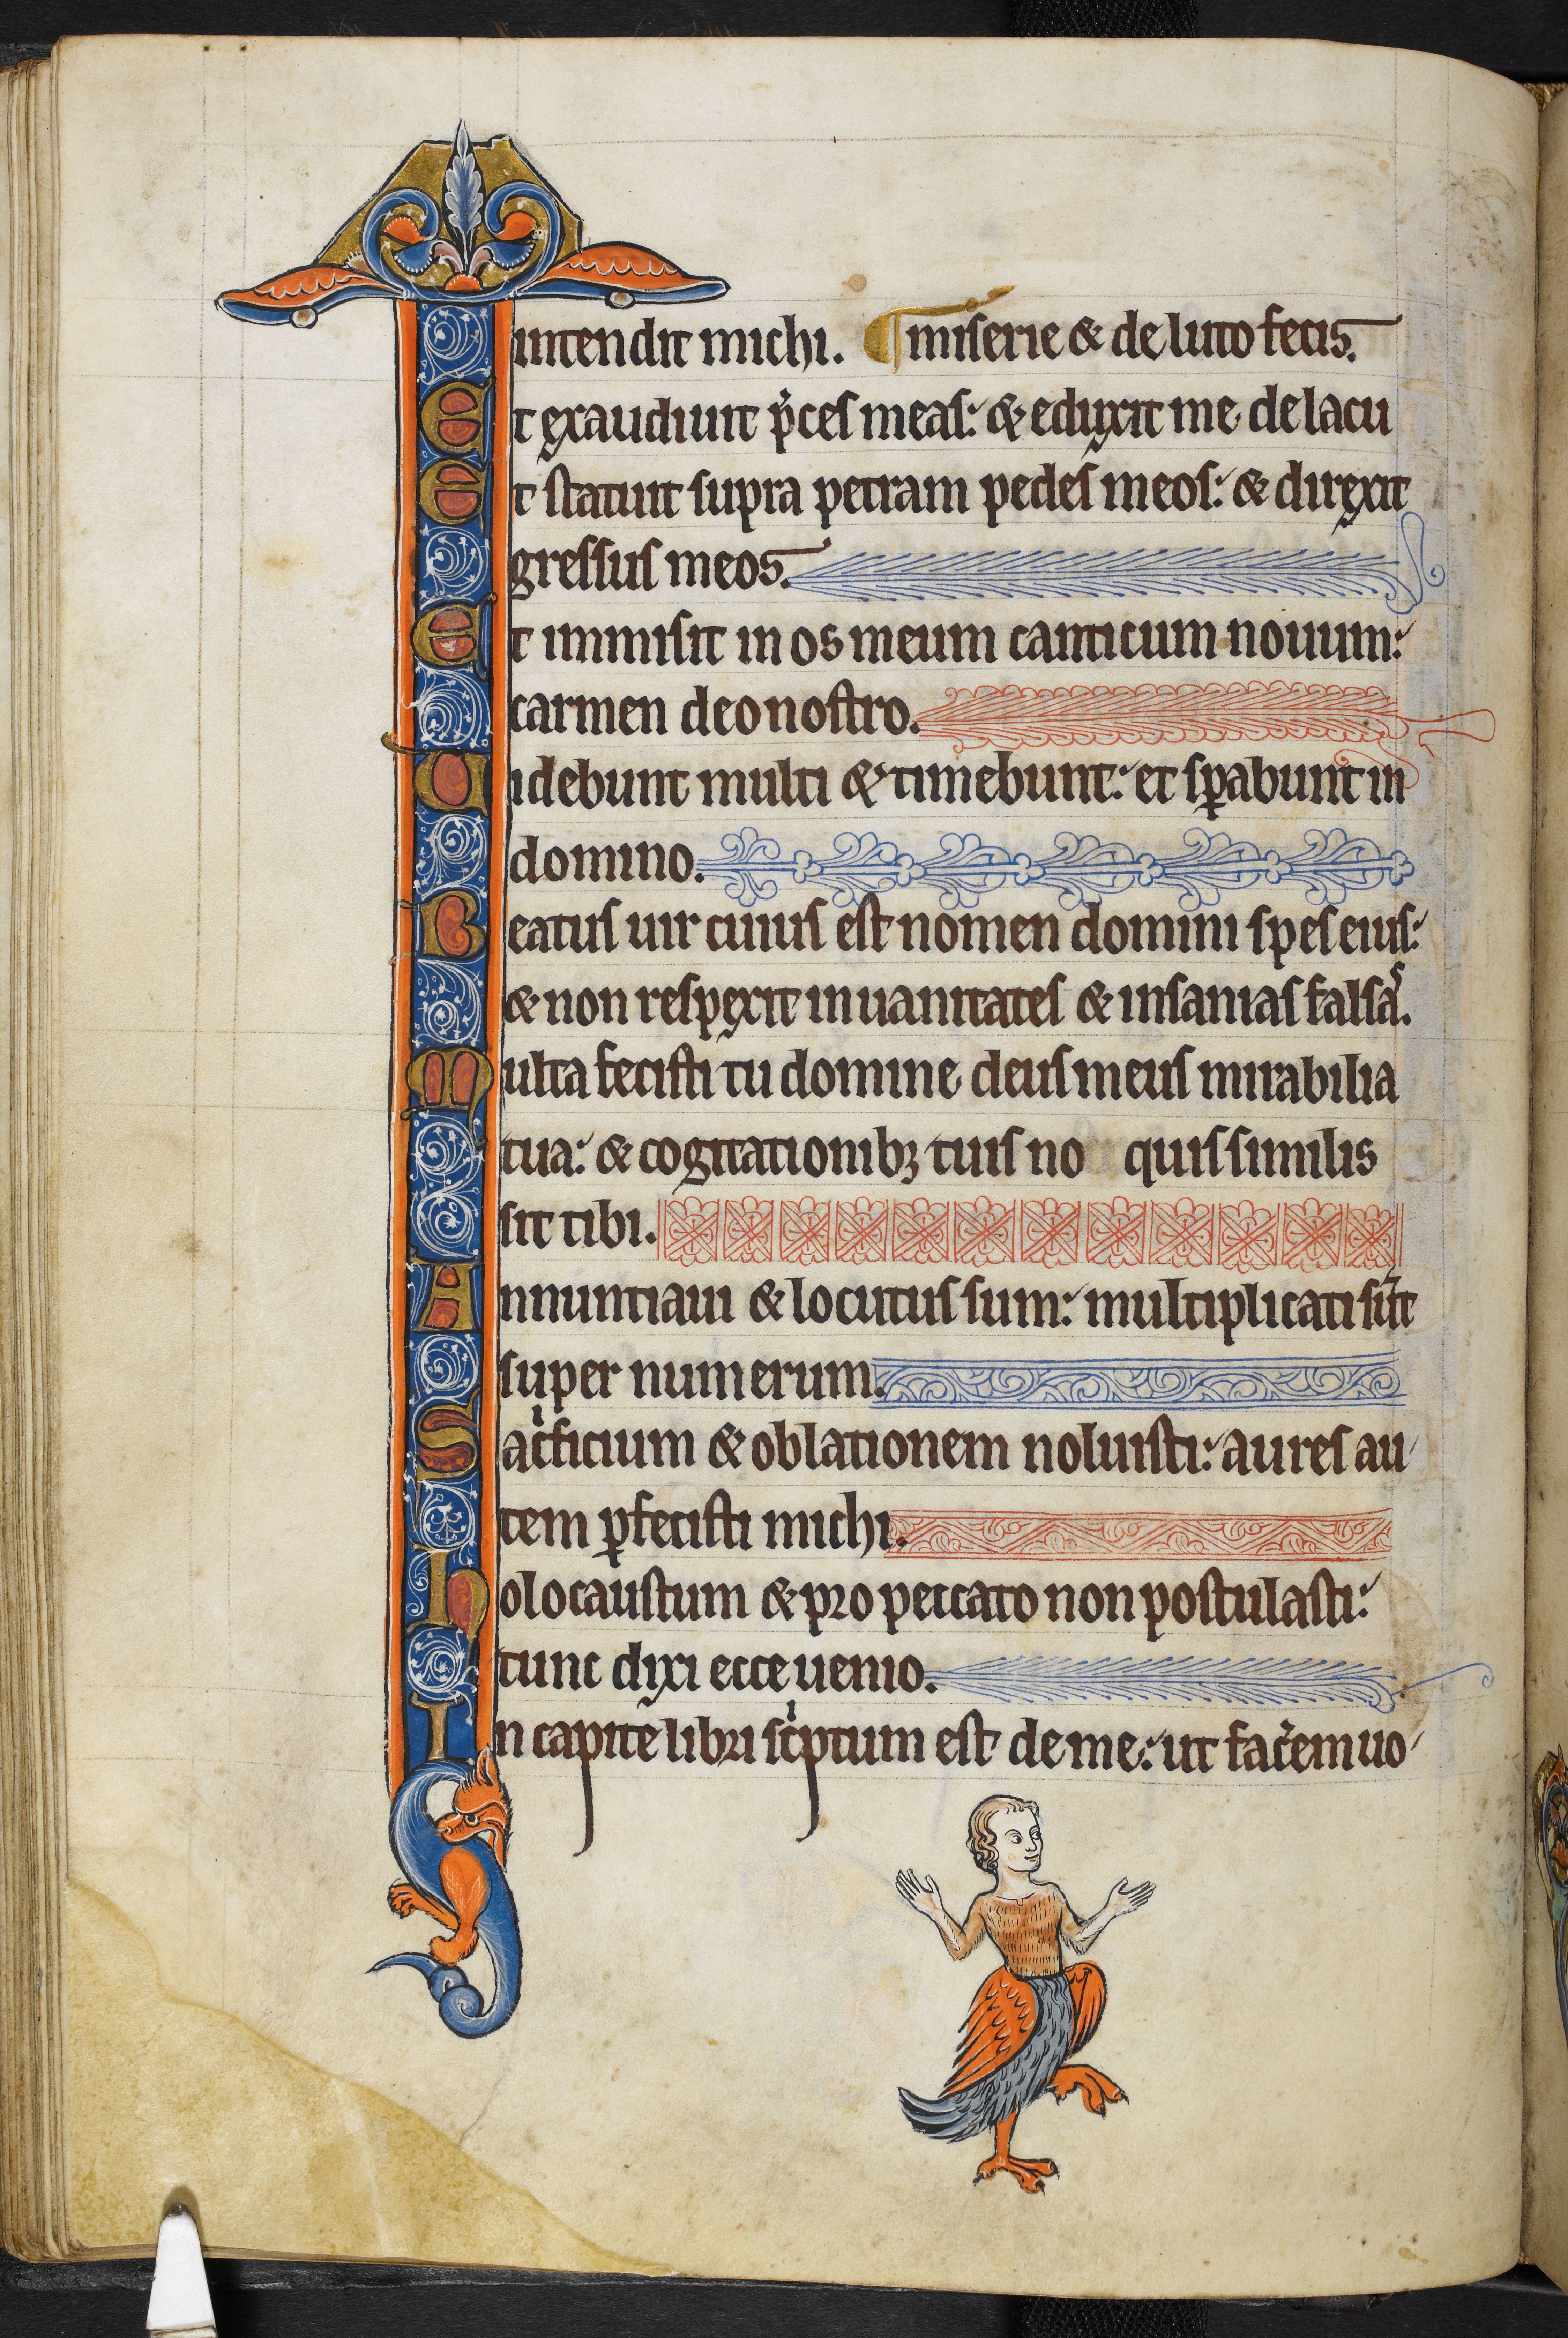 intendit michi. ¶ miserie & de luto fecis.
Et exaudiuit p̓ces meas: & eduxit me de lacu
Et statuit supra petram pedes meos: & direxit
gressus meos.
Et immisit in os meum canticum nouum:
carmen deo nostro.
Uidebunt multi & timebunt: et sꝑabunt in
domino.
Beatus uir cuius est nomen domini spes eius:
& non respexit in uanitates & insanias falsaˢ.
Multa fecisti tu domine deus meus mirabilia
tua: & cogitationibꝫ tuis no quis similis
sit tibi.
Annuntiaui & locutus sum: multiplicati su̅t
super numerum.
Sacͥficium & oblationem noluisti: aures au
tem ꝑfecisti michi.
Holocaustum & pro peccato non postulasti:
tunc dixi ecce uenio.
In capite libri scͥptum est de me: ut fac̓em uo